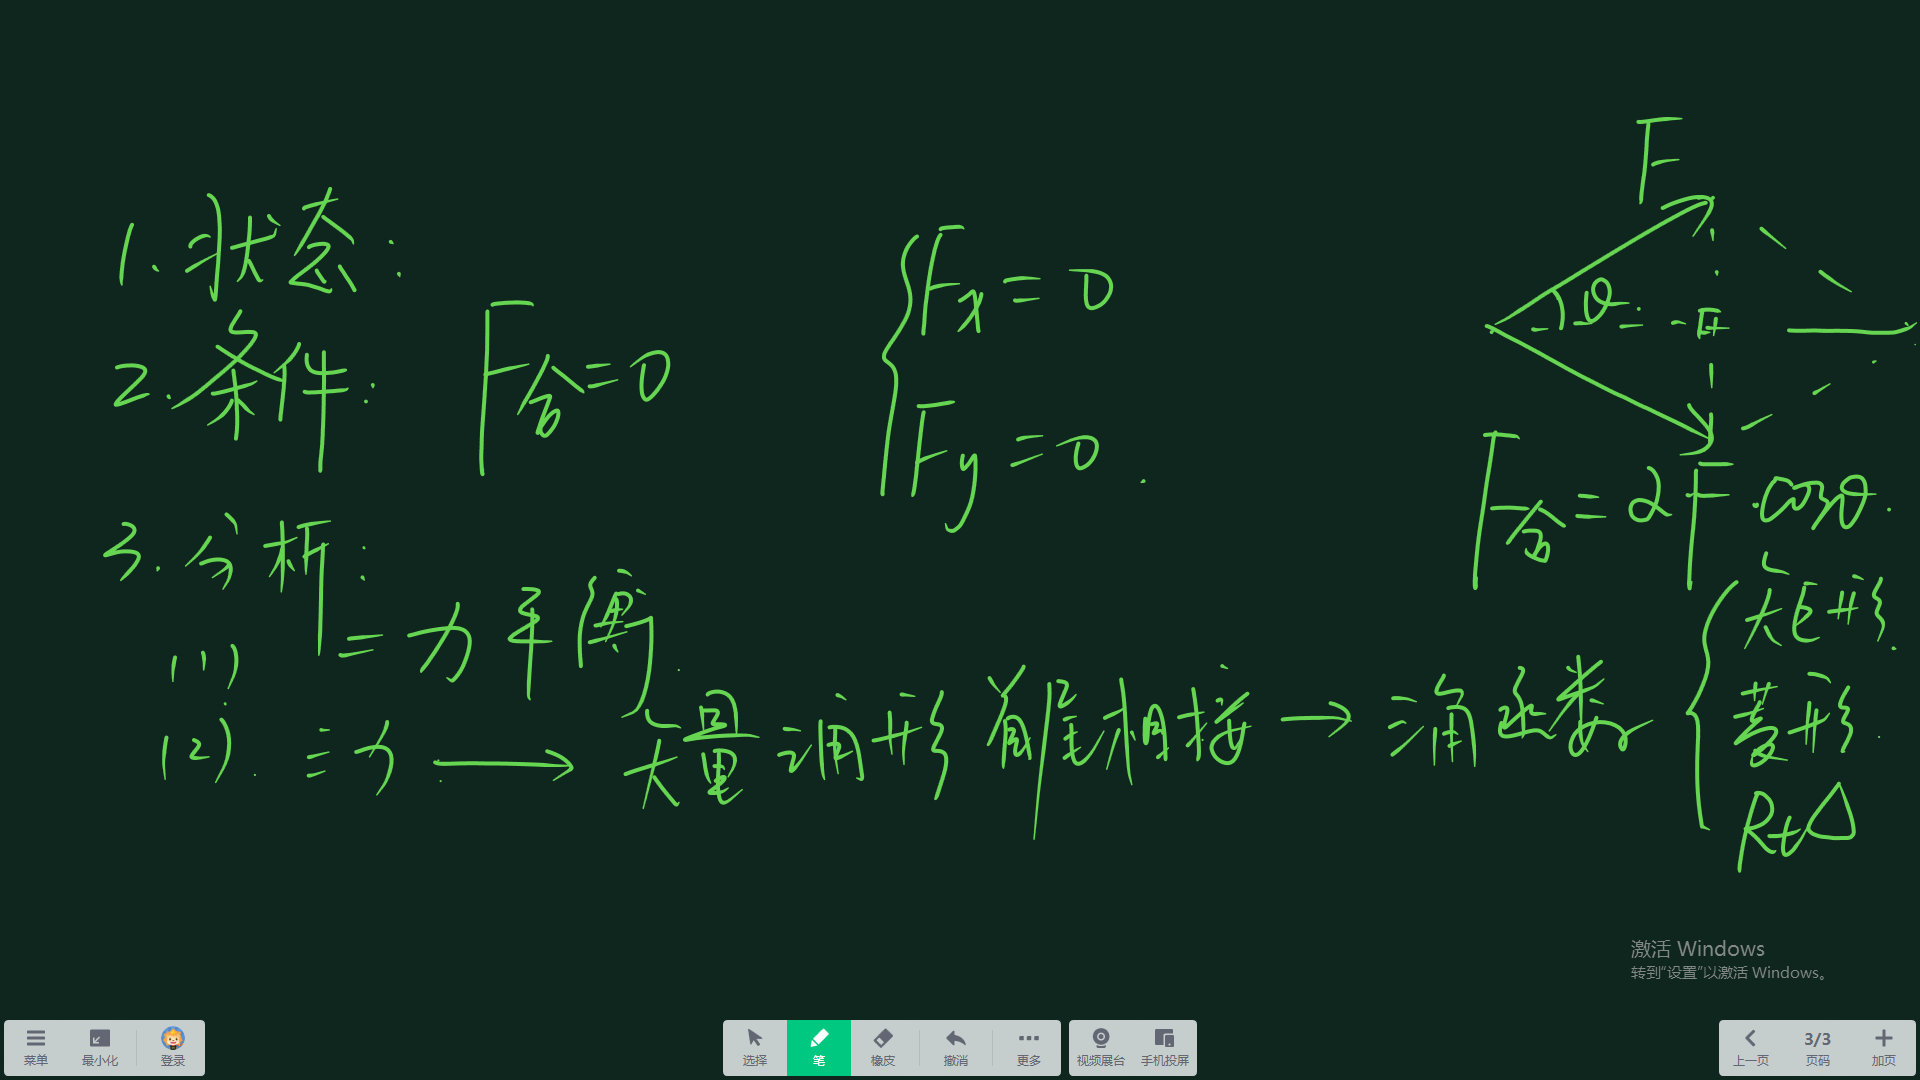 1. 状态:
2. 条件: F合=0
Fx=0
Fy=0.
F
θ
F合=2F·cosθ.
3. 分析:
(1) 二力平衡.
(2). 三力 → 矢量三角形 首尾相接 → 三角函数
矩形.
菱形.
Rt△
激活 Windows
转到“设置”以激活 Windows。
菜单 最小化 登录 选择 笔 橡皮 撤消 更多 视频展台 手机投屏 上一页 3/3 页码 加页